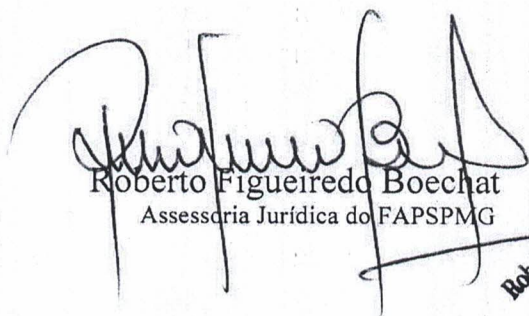 Roberto Figueiredo Boechat
Assessoria Jurídica do FAPSPMG
Rob